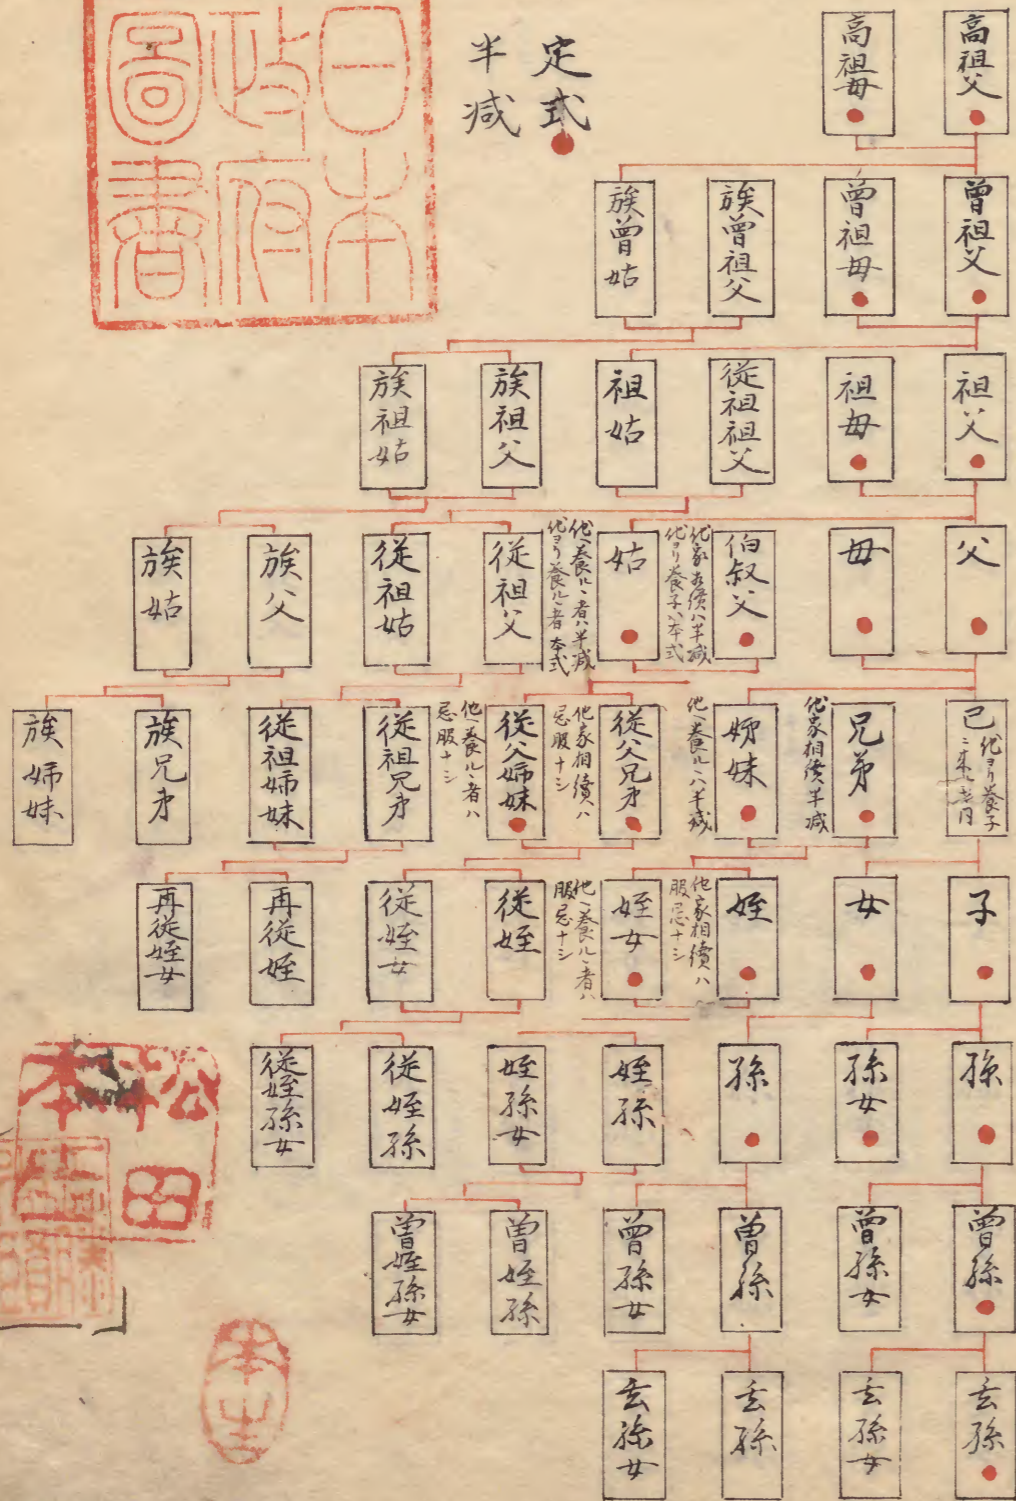 定式
半減
高祖父
高祖母
曽祖父
曽祖母
族曽祖父
族曽姑
祖父
祖母
従祖祖父
祖姑
族祖父
族祖姑
父
母
伯叔父
他家相続ハ半減
他ヨリ養子ハ本式
姑
他ヘ養ルヽ者ハ半減
他ヨリ養ルヽ者本式
従祖父
従祖姑
族父
族姑
己
他ヨリ養子
兄弟
他家相續半減
姉妹
他ヘ養ルヽハ半減
従父兄弟
他家相續ハ
忌服ナシ
従父姉妹
他ヘ養ルヽ者ハ
忌服ナシ
従祖兄弟
従祖姉妹
族兄弟
族姉妹
子
女
姪
他家相續ハ
服忌ナシ
姪女
他ヘ養ルヽ者ハ
服忌ナシ
従姪
従姪女
再従姪
再従姪女
孫
孫女
孫
姪孫
姪孫女
従姪孫
従姪孫女
曽孫
曽孫女
曽孫
曽孫女
曽姪孫
曽姪孫女
玄孫
玄孫女
玄孫
玄孫女
日本
政府
圖書